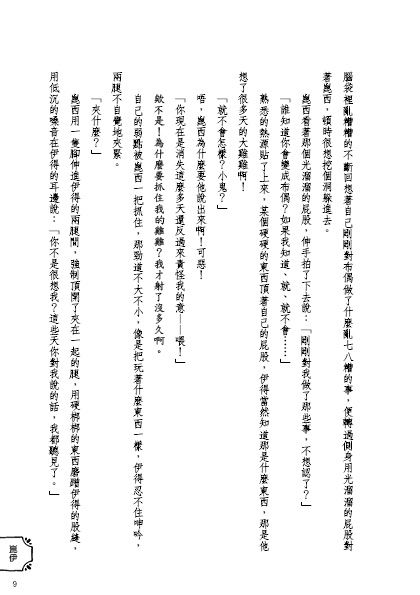 腦袋裡亂糟糟的不斷回想著自己剛剛對布偶做了什麼亂七八糟的事，便轉過側身用光溜溜的屁股對
著崑西，頓時很想挖個洞躲進去。
崑西看著那個光溜溜的屁股，伸手拍了下去說：「剛剛對我做了那些事，不想認了？」
「誰知道你會變成布偶？如果我知道、就、就不會……」
熟悉的熱源貼了上來，某個硬硬的東西頂著自己的屁股，伊得當然知道那是什麼東西，那是他
想了很多天的大雞雞啊！
「就不會怎樣？小鬼？」
唔，崑西為什麼要他說出來啊！可惡！
「你現在是消失這麼多天還反過來責怪我的意——喂！」
欸不是！為什麼要抓住我的雞雞？我才射了沒多久啊。
自己的弱點被崑西一把抓住，那勁道不大不小，像是把玩著什麼東西一樣，伊得忍不住呻吟，
兩腿不自覺地夾緊。
「夾什麼？」
崑西用一隻腳伸進伊得的兩腿間，強制頂開了夾在一起的腿，用硬梆梆的東西磨蹭伊得的股縫，
用低沉的嗓音在伊得的耳邊說：「你不是很想我？這些天你對我說的話，我都聽見了。」
崑伊
9